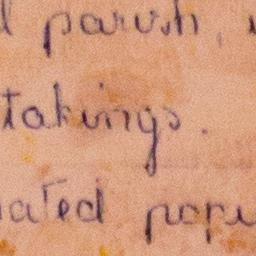 l parish,
takings.
ated popu